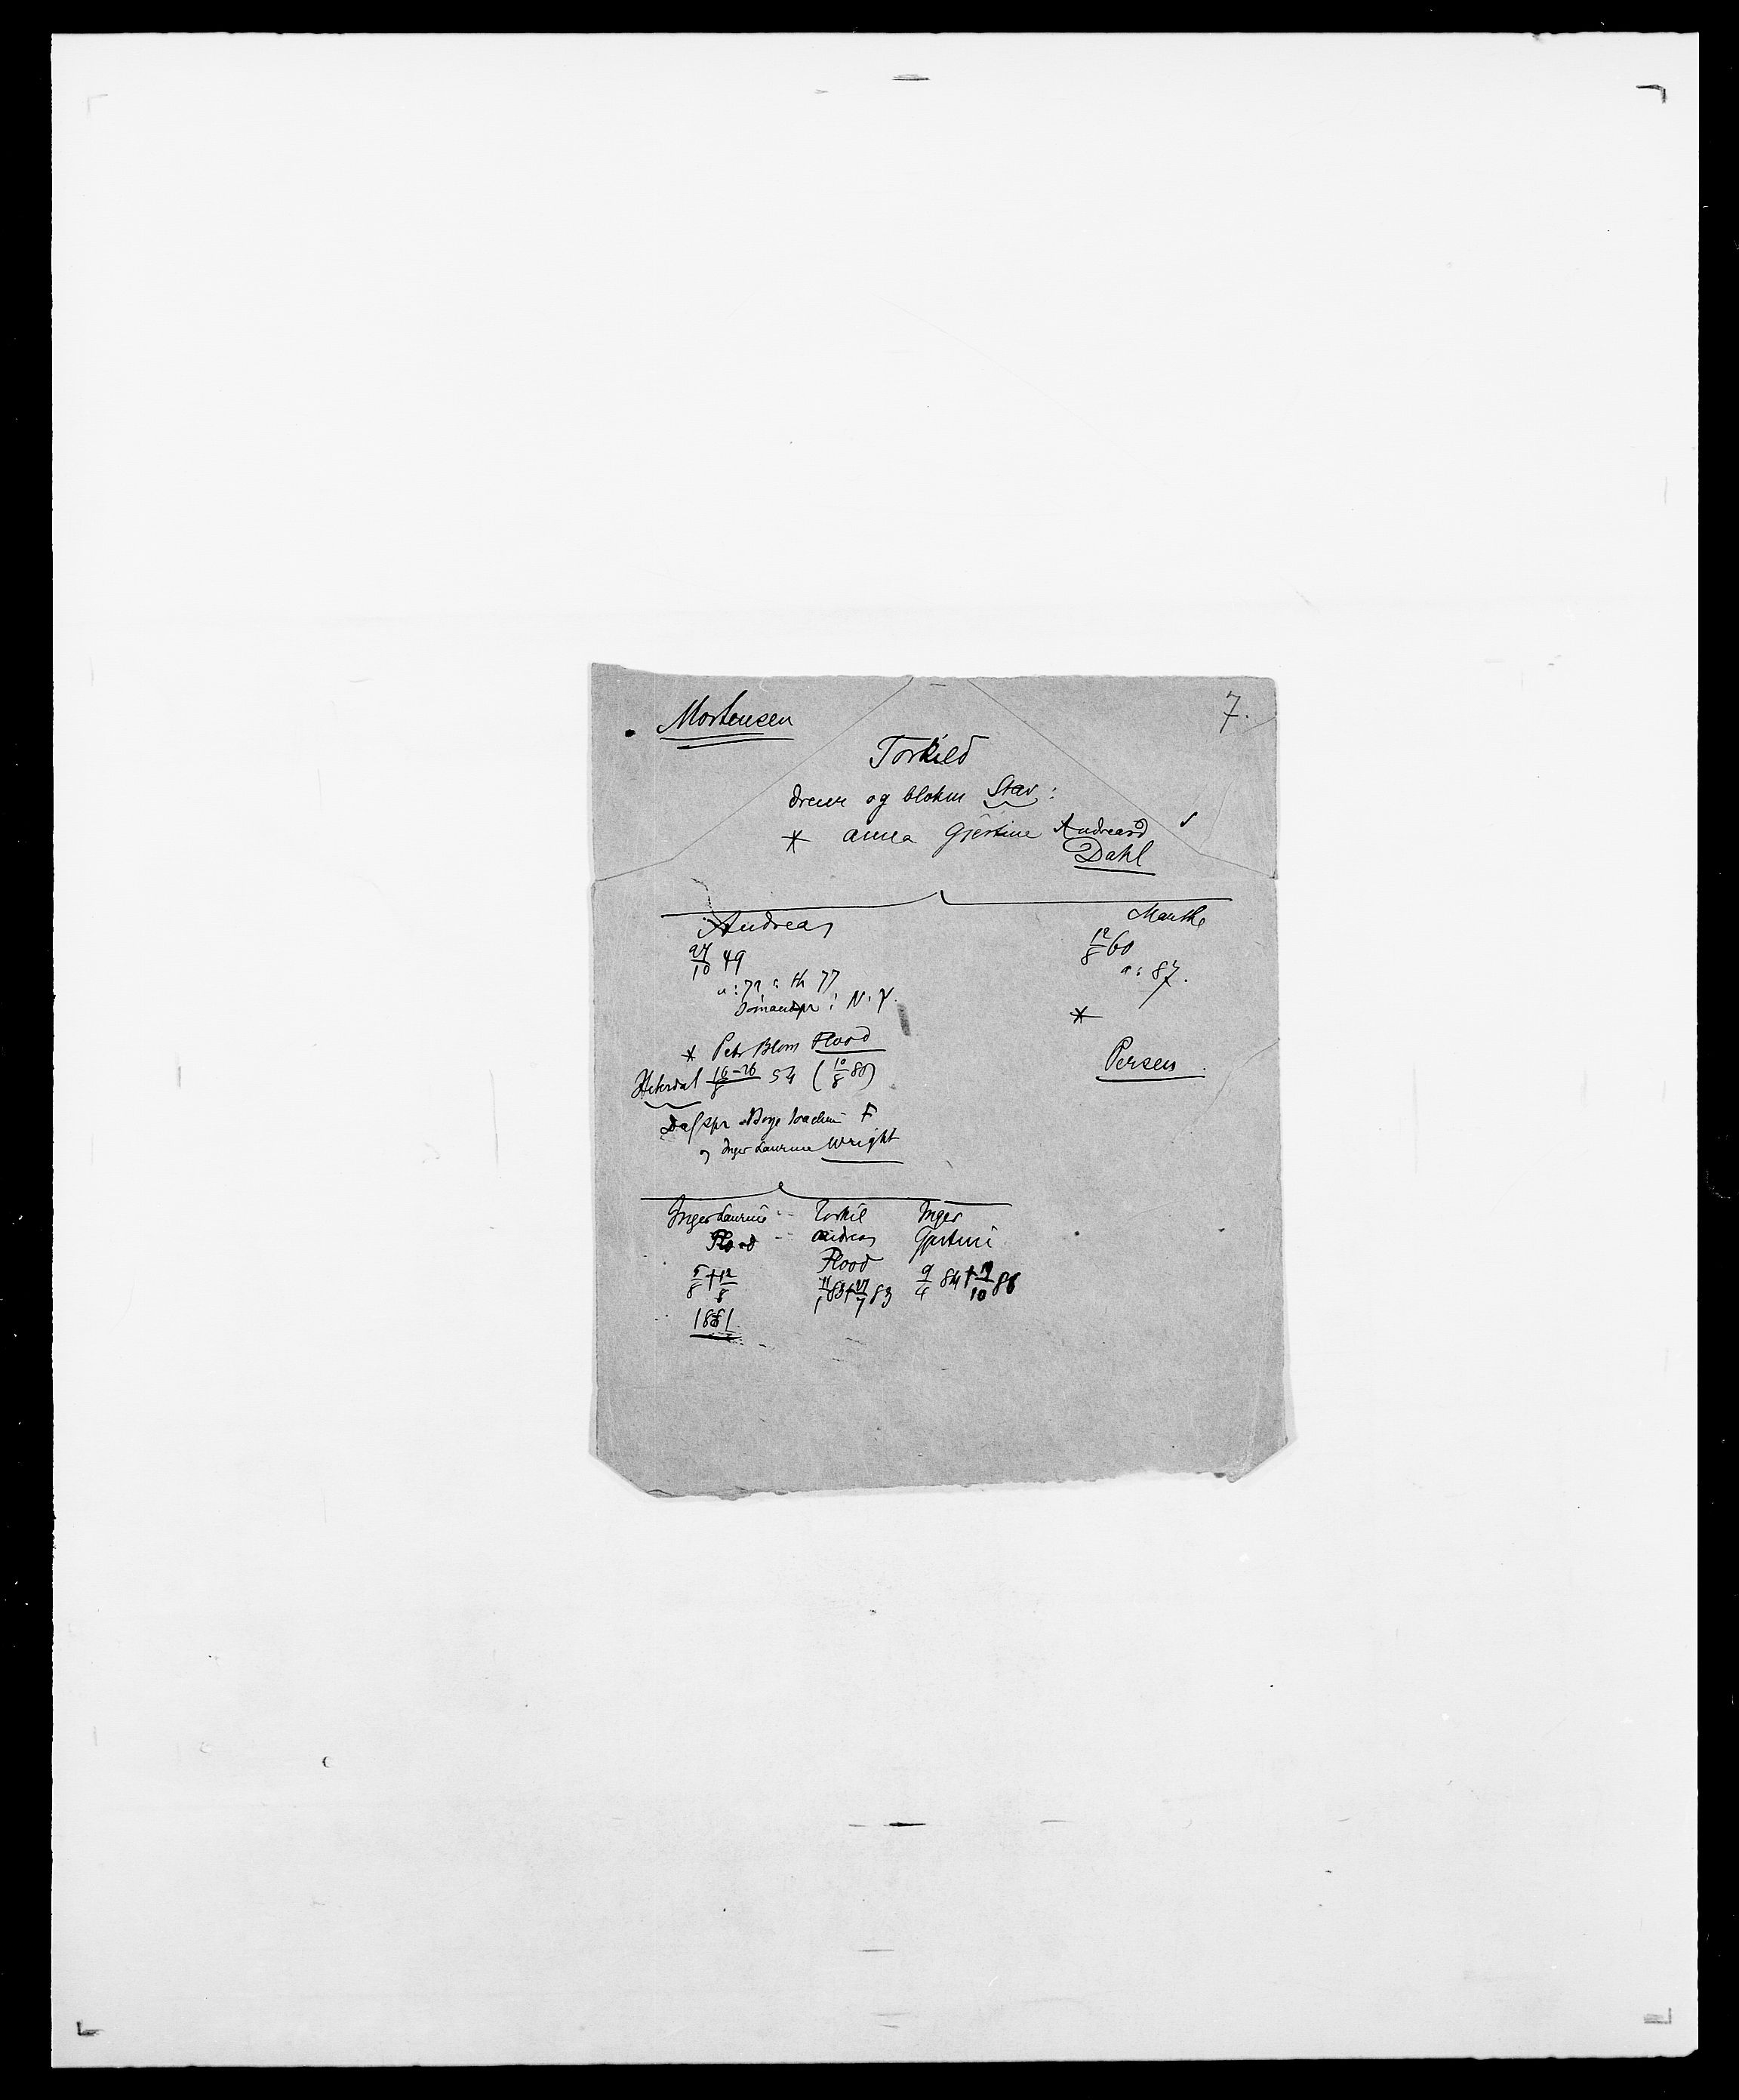 Mortensen 7.
Torkild
dreier og blokm Stav:
* Anna Gjertine Andreasd
Dahl
Andreas
27/10 49
a: 72 c: th 77
N. 7.
* Petr Blom Flood
Hiterdal 16-26/8 54 (10/8 80)
Boye Joachim F
og Inger Laurine Wright
Marthe
12/8 60
a: 87.
*
Persen
Inger Laurine
Flood
5/8 + 12/8
1881
Torkil
Andreas
Flood
11/1 83 + 27/7 83
Inger
Gjertine
9/4 84 + 19/10 86